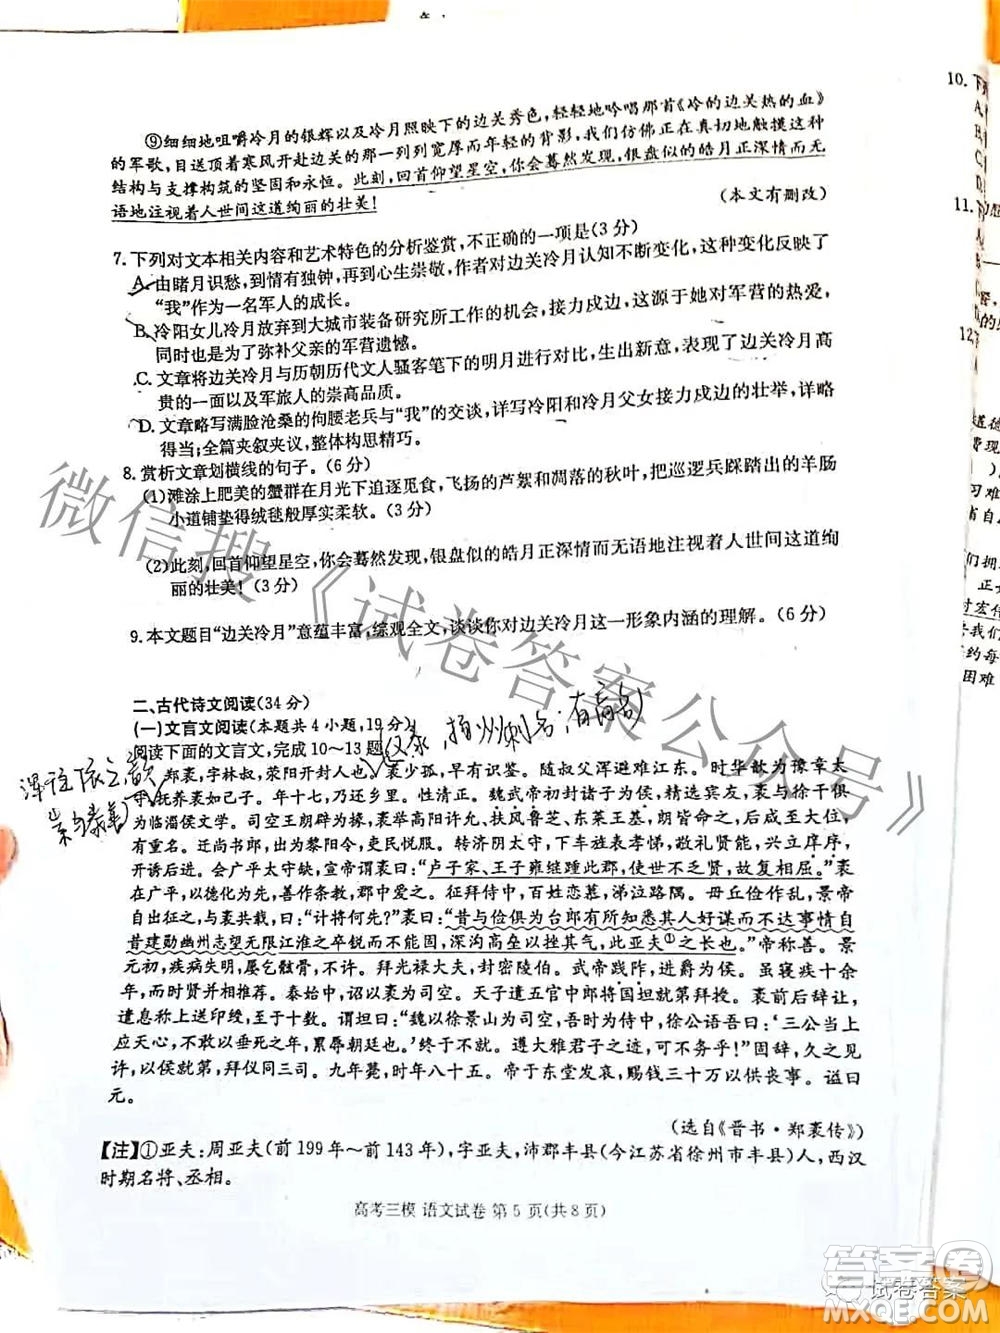 ⑨细细地咀嚼冷月的银辉以及冷月照映下的边关秀色,轻轻地吟唱那首《冷的边关热的血》
的军歌,目送顶着寒风开赴边关的那一列列宽厚而年轻的背影,我们仿佛正在真切地触摸这种
结构与支撑构筑的坚固和永恒。此刻,回首仰望星空,你会蓦然发现,银盘似的皓月正深情而无
语地注视着人世间这道绚丽的壮美!
(本文有删改)
7.下列对文本相关内容和艺术特色的分析鉴赏,不正确的一项是(3分)
A.由睹月识愁,到情有独钟,再到心生崇敬,作者对边关冷月认知不断变化,这种变化反映了
“我”作为一名军人的成长。
B.冷阳女儿冷月放弃到大城市装备研究所工作的机会,接力戍边,这源于她对军营的热爱,
同时也是为了弥补父亲的军营遗憾。
C.文章将边关冷月与历朝历代文人骚客笔下的明月进行对比,生出新意,表现了边关冷月高
贵的一面以及军旅人的崇高品质。
D.文章略写满脸沧桑的佝腰老兵与“我”的交谈,详写冷阳和冷月父女接力戍边的壮举,详略
得当;全篇夹叙夹议,整体构思精巧。
8.赏析文章划横线的句子。(6分)
(1)滩涂上肥美的蟹群在月光下追逐觅食,飞扬的芦絮和凋落的秋叶,把巡逻兵踩踏出的羊肠
小道铺垫得绒毯般厚实柔软。(3分)
(2)此刻,回首仰望星空,你会蓦然发现,银盘似的皓月正深情而无语地注视着人世间这道绚
丽的壮美!(3分)
9.本文题目“边关冷月”意蕴丰富,综观全文,谈谈你对边关冷月这一形象内涵的理解。(6分)
二、古代诗文阅读(34分)
(一)文言文阅读(本题共4小题,19分)
阅读下面的文言文,完成10～13题。
郑袤,字林叔,荥阳开封人也。袤少孤,早有识鉴。随叔父浑避难江东。时华歆为豫章太
守,抚养袤如己子。年十七,乃还乡里。性清正。魏武帝初封诸子为侯,精选宾友,袤与徐干俱
为临淄侯文学。司空王朗辟为掾,袤举高阳许允、扶风鲁芝、东莱王基,朗皆命之,后咸至大位,
有重名。迁尚书郎。出为黎阳令,吏民悦服。转济阴太守,下车旌表孝悌,敬礼贤能,兴立庠序,
开诱后进。会广平太守缺,宣帝谓袤曰:“卢子家、王子雍继踵此郡,使世不乏贤,故复相屈。”袤
在广平,以德化为先,善作条教,郡中爱之。征拜侍中,百姓恋慕,涕泣路隅。毋丘俭作乱,景帝
与袤共载,曰:“计将何先?”袤曰:“昔与俭俱为台郎有所知悉其人好谋而不达事情自
昔建勋幽州志望无限江淮之卒锐而不能固,深沟高垒以挫其气,此亚夫①之长也。”帝称善。景
元初,疾病失明,屡乞骸骨,不许。拜光禄大夫,封密陵伯。武帝践阼,进爵为侯。虽寝疾十余
年,而时贤并相推荐。泰始中,诏以袤为司空。天子遣五官中郎将国坦就第拜授。袤前后辞让,
遣息称上送印绶,至于十数。谓坦曰:“魏以徐景山为司空,吾时为侍中,徐公语吾曰:‘三公当上
应天心,不敢以垂死之年,累辱朝廷也。’终于不就。遵大雅君子之迹,可不务乎!”固辞,久之见
许,以侯就第,拜仪同三司。九年薨,时年八十五。帝于东堂发哀,赐钱三十万以供丧事。谥曰
元。
(选自《晋书·郑袤传》)
【注】①亚夫:周亚夫(前199年～前143年),字亚夫,沛郡丰县(今江苏省徐州市丰县)人,西汉
时期名将、丞相。
高考三模 语文试卷 第5页(共8页)
微信搜《试卷答案公众号》
10.
11.
12
答案圈
试卷答案
MXQE.COM